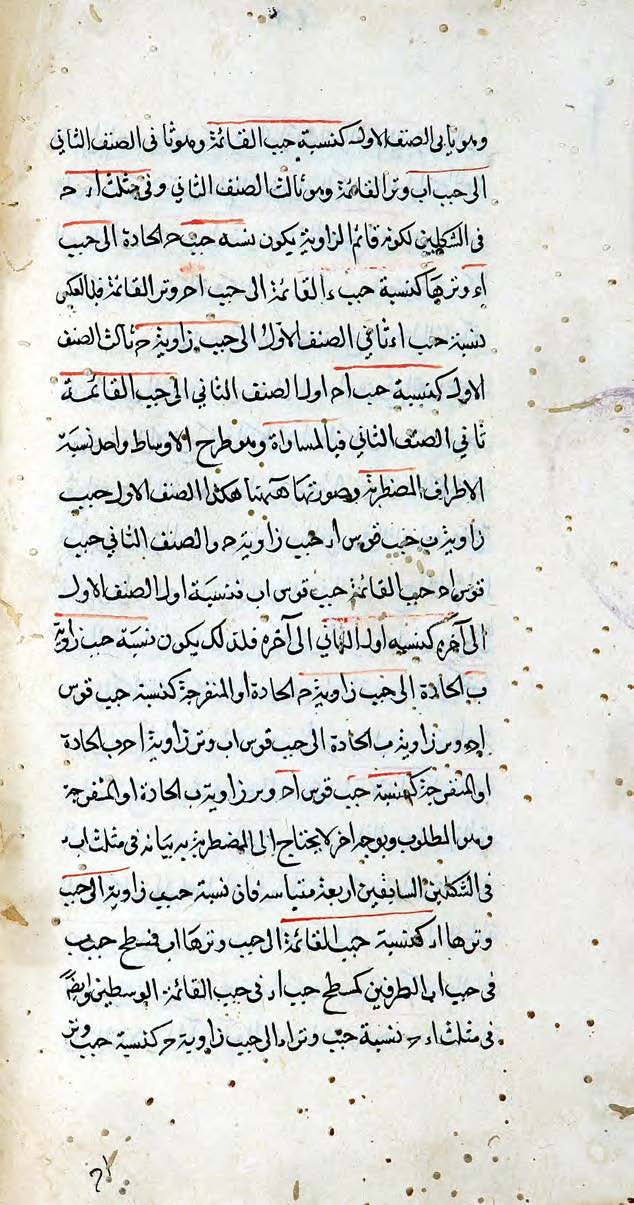 وهو ثانى الصنف الاول كنسبة جيب القائمة وهو ثانى الصنف الثانى
الى جيب اب وتر القائمة وهو ثالث الصنف الثانى وفى مثلث اء ح
فى الشكلين لكونه قائم الزاوية يكون نسبة جيب ح الحادة الى جيب
اء وترها كنسبة جيب ء القائمة الى جيب اح وتر القائمة فبالعكس
نسبة جيب اء ثانى الصنف الاول الى جيب زاوية ح ثالث الصنف
الاول كنسبة جيب اح اول الصنف الثانى الى جيب القائمة
ثانى الصنف الثانى فبالمساواة وهو طرح الاوساط واخذ نسبة
الاطراف المضطربة وصورتها ههنا هكذا الصنف الاول جيب
زاوية ب جيب قوس اء جيب زاوية ح والصنف الثانى جيب
قوس اح جيب القائمة جيب قوس اب فنسبة اول الصنف الاول
الى آخره كنسبة اول الثانى الى آخره فلذلك يكون نسبة جيب زاوية
ب الحادة الى جيب زاوية ح الحادة او المنفرجة كنسبة جيب قوس
اح وتر زاوية ب الحادة الى جيب قوس اب وتر زاوية اح ب الحادة
او المنفرجة كنسبة جيب قوس اح وتر زاوية ب الحادة او المنفرجة
وهو المطلوب وبوجه اخر لا يحتاج الى المضطربة بيانه فى مثلث اب ء
فى الشكلين السابقين اربعة متناسبة فان نسبة جيب زاوية الى جيب
وترها اء كنسبة جيب القائمة الى جيب وترها اب فسطح جيب ب
فى جيب اب الطرفين كسطح جيب اء فى جيب القائمة الوسطين وايضا
فى مثلث اء ح نسبة جيب وتر اء الى جيب زاوية ح كنسبة جيب وتر